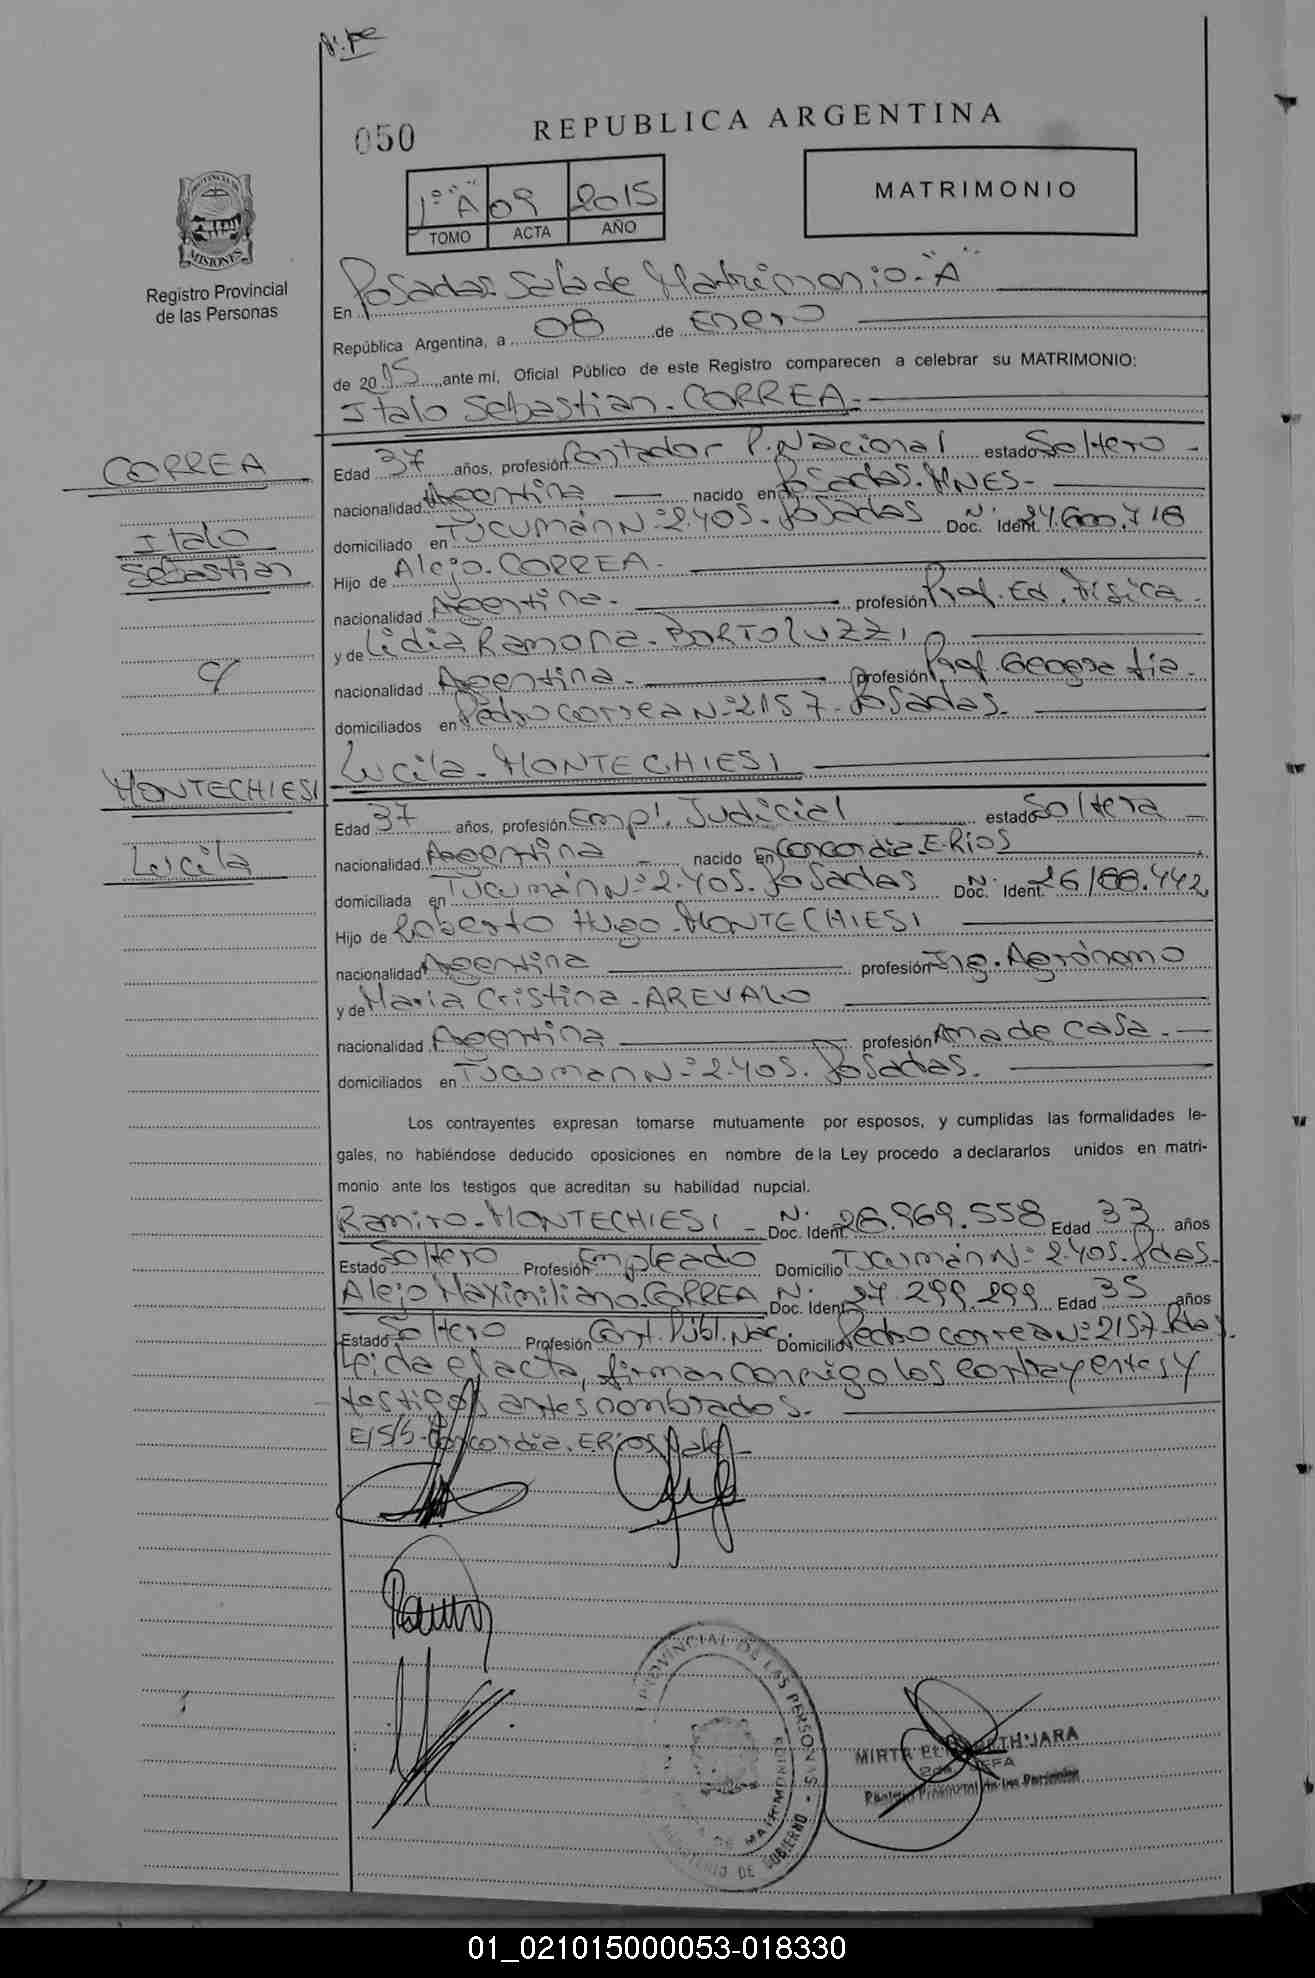 050
REPUBLICA ARGENTINA
1º "A" 09 2015
TOMO ACTA AÑO
MATRIMONIO
PROVINCIA DE
MISIONES
Registro Provincial
de las Personas
En Posadas. Sala de Matrimonio - "A"
República Argentina, a 08 de Enero
de 2015 ante mí, Oficial Público de este Registro comparecen a celebrar su MATRIMONIO:
Italo Sebastian. CORREA.-
CORREA
Italo
Sebastian
c/
MONTECHIESI
Lucila
Edad 37 años, profesión Contador P. Nacional estado Soltero -
nacionalidad Argentina nacido en Posadas. MNES-
domiciliado en Tucumán Nº 2.405. Posadas Doc. Ident. Nº 24.600.718
Hijo de Alejo. CORREA.
nacionalidad Argentina.- profesión Prof. Ed. Física.
y de Lidia Ramona. BORTOLUZZI
nacionalidad Argentina.- profesión Prof. Geografia.
domiciliados en Pedro Correa Nº 2157. Posadas.
Lucila. MONTECHIESI
Edad 37 años, profesión Empl. Judicial estado Soltera -
nacionalidad Argentina - nacido en Concordia. E.Rios
domiciliada en Tucumán Nº 2.405. Posadas Doc. Ident. Nº 26.188.442
Hijo de Roberto Hugo. MONTECHIESI
nacionalidad Argentina profesión Ing. Agrónomo
y de Maria Cristina. AREVALO
nacionalidad Argentina profesión Ama de casa. -
domiciliados en Tucuman Nº 2.405. Posadas.
Los contrayentes expresan tomarse mutuamente por esposos, y cumplidas las formalidades le-
gales, no habiéndose deducido oposiciones en nombre de la Ley procedo a declararlos unidos en matri-
monio ante los testigos que acreditan su habilidad nupcial.
Ramiro. MONTECHIESI - Doc. Ident. Nº 28.969.558 Edad 33 años
Estado Soltero Profesión Empleado Domicilio Tucumán Nº 2.405. Pdas.
Alejo Maximiliano. CORREA Doc. Ident. Nº 27.299.299 Edad 35 años
Estado Soltero Profesión Cont. Públ. Nac. Domicilio Pedro Correa Nº 2157. Pdas.
Leida el acta, firman conmigo los contrayentes y
testigos antes nombrados.
E/S/S- Concordia. E.Rios. Vale -
PROVINCIAL DE LAS PERSONAS
DE MATRIMONIOS
MINISTERIO DE GOBIERNO
MIRTA JARA
JEFA
Registro Provincial de las Personas
01_021015000053-018330